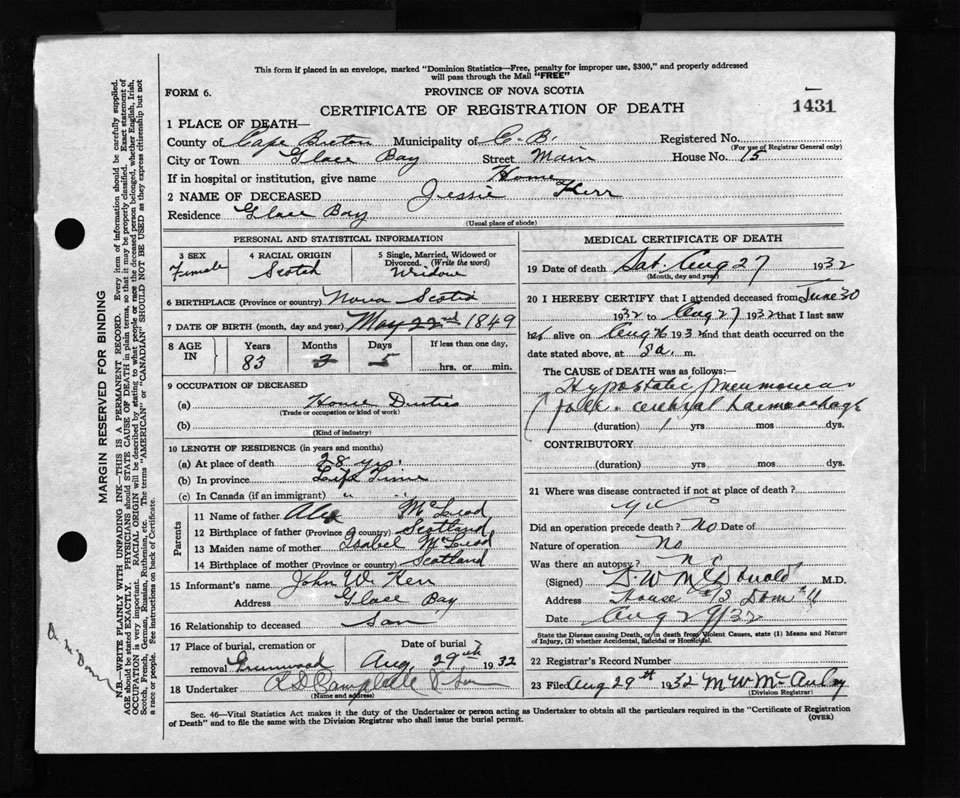 This form if placed in an envelope, marked "Dominion Statistics—Free, penalty for improper use, $300," and properly addressed
will pass through the Mail "FREE"
FORM 6.
PROVINCE OF NOVA SCOTIA
CERTIFICATE OF REGISTRATION OF DEATH
1431
1 PLACE OF DEATH—
County of Cape Breton Municipality of C. B. Registered No.
(For use of Registrar General only)
City or Town Glace Bay Street Main House No. 15
If in hospital or institution, give name Home
2 NAME OF DECEASED Jessie Kerr
Residence Glace Bay
(Usual place of abode)
PERSONAL AND STATISTICAL INFORMATION
3 SEX
Female
4 RACIAL ORIGIN
Scotch
5 Single, Married, Widowed or
Divorced. (Write the word)
Widow
6 BIRTHPLACE (Province or country) Nova Scotia
7 DATE OF BIRTH (month, day and year) May 22nd 1849
8 AGE IN
Years
83
Months
3
Days
5
If less than one day,
hrs. or min.
9 OCCUPATION OF DECEASED
(a) House Duties
(Trade or occupation or kind of work)
(b)
(Kind of industry)
10 LENGTH OF RESIDENCE (in years and months)
(a) At place of death 28 yrs.
(b) In province Life Time
(c) In Canada (if an immigrant) " "
Parents
11 Name of father Alex McLeod
12 Birthplace of father (Province or country) Scotland
13 Maiden name of mother Isabel McLeod
14 Birthplace of mother (Province or country) Scotland
15 Informant's name John W. Kerr
Address Glace Bay
16 Relationship to deceased Son
17 Place of burial, cremation or
removal Greenwood
Date of burial
Aug. 29th, 1932
18 Undertaker
(Name and address)
MEDICAL CERTIFICATE OF DEATH
19 Date of death Sat. Aug 27 1932
(Month, day and year)
20 I HEREBY CERTIFY that I attended deceased from June 30
1932 to Aug 27 1932 that I last saw
her alive on Aug 26 1932 and that death occurred on the
date stated above, at 8 a. m.
The CAUSE of DEATH was as follows:—
Hypostatic Pneumonia
foll. cerebral haemorrhage
(duration) yrs mos dys.
CONTRIBUTORY
(duration) yrs mos dys.
21 Where was disease contracted if not at place of death?
Did an operation precede death? No Date of
Nature of operation No
Was there an autopsy? No
(Signed) D. W. McDonald M.D.
Address House #13 Dom #11
Date Aug 29/32
State the Disease causing Death, or in death from Violent Causes, state (1) Means and Nature
of Injury, (2) whether Accidental, Suicidal or Homicidal.
22 Registrar's Record Number
23 Filed Aug 29th 1932 M W McAulay
(Division Registrar)
Sec. 46—Vital Statistics Act makes it the duty of the Undertaker or person acting as Undertaker to obtain all the particulars required in the "Certificate of Registration
of Death" and to file the same with the Division Registrar who shall issue the burial permit.
(OVER)
MARGIN RESERVED FOR BINDING
N.B.—WRITE PLAINLY WITH UNFADING INK—THIS IS A PERMANENT RECORD. Every item of information should be carefully supplied.
AGE should be stated EXACTLY. PHYSICIANS should STATE CAUSE OF DEATH in plain terms, so that it may be properly classified. Exact statement of
OCCUPATION is very important. RACIAL ORIGIN will be described by stating to what people or race the deceased person belonged, whether English, Irish,
Scotch, French, German, Russian, Ruthenian, etc. The terms "AMERICAN" or "CANADIAN" SHOULD NOT BE USED as they express citizenship but not
a race or people. See instructions on back of Certificate.